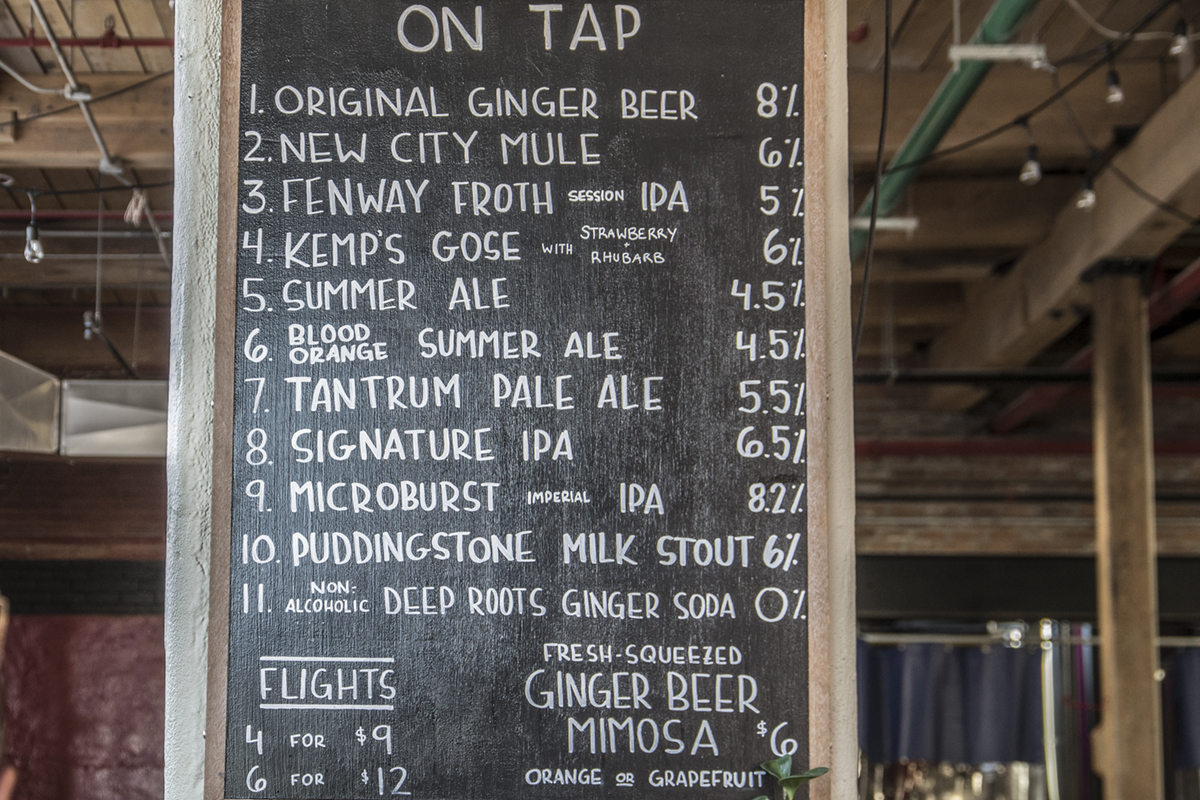 ON TAP
1. ORIGINAL GINGER BEER 8%
2. NEW CITY MULE 6%
3. FENWAY FROTH SESSION IPA 5%
4. KEMP'S GOSE WITH STRAWBERRY + RHUBARB 6%
5. SUMMER ALE 4.5%
6. BLOOD ORANGE SUMMER ALE 4.5%
7. TANTRUM PALE ALE 5.5%
8. SIGNATURE IPA 6.5%
9. MICROBURST IMPERIAL IPA 8.2%
10. PUDDINGSTONE MILK STOUT 6%
11. NON-ALCOHOLIC DEEP ROOTS GINGER SODA 0%
FLIGHTS
4 FOR $9
6 FOR $12
FRESH-SQUEEZED
GINGER BEER
MIMOSA $6
ORANGE OR GRAPEFRUIT